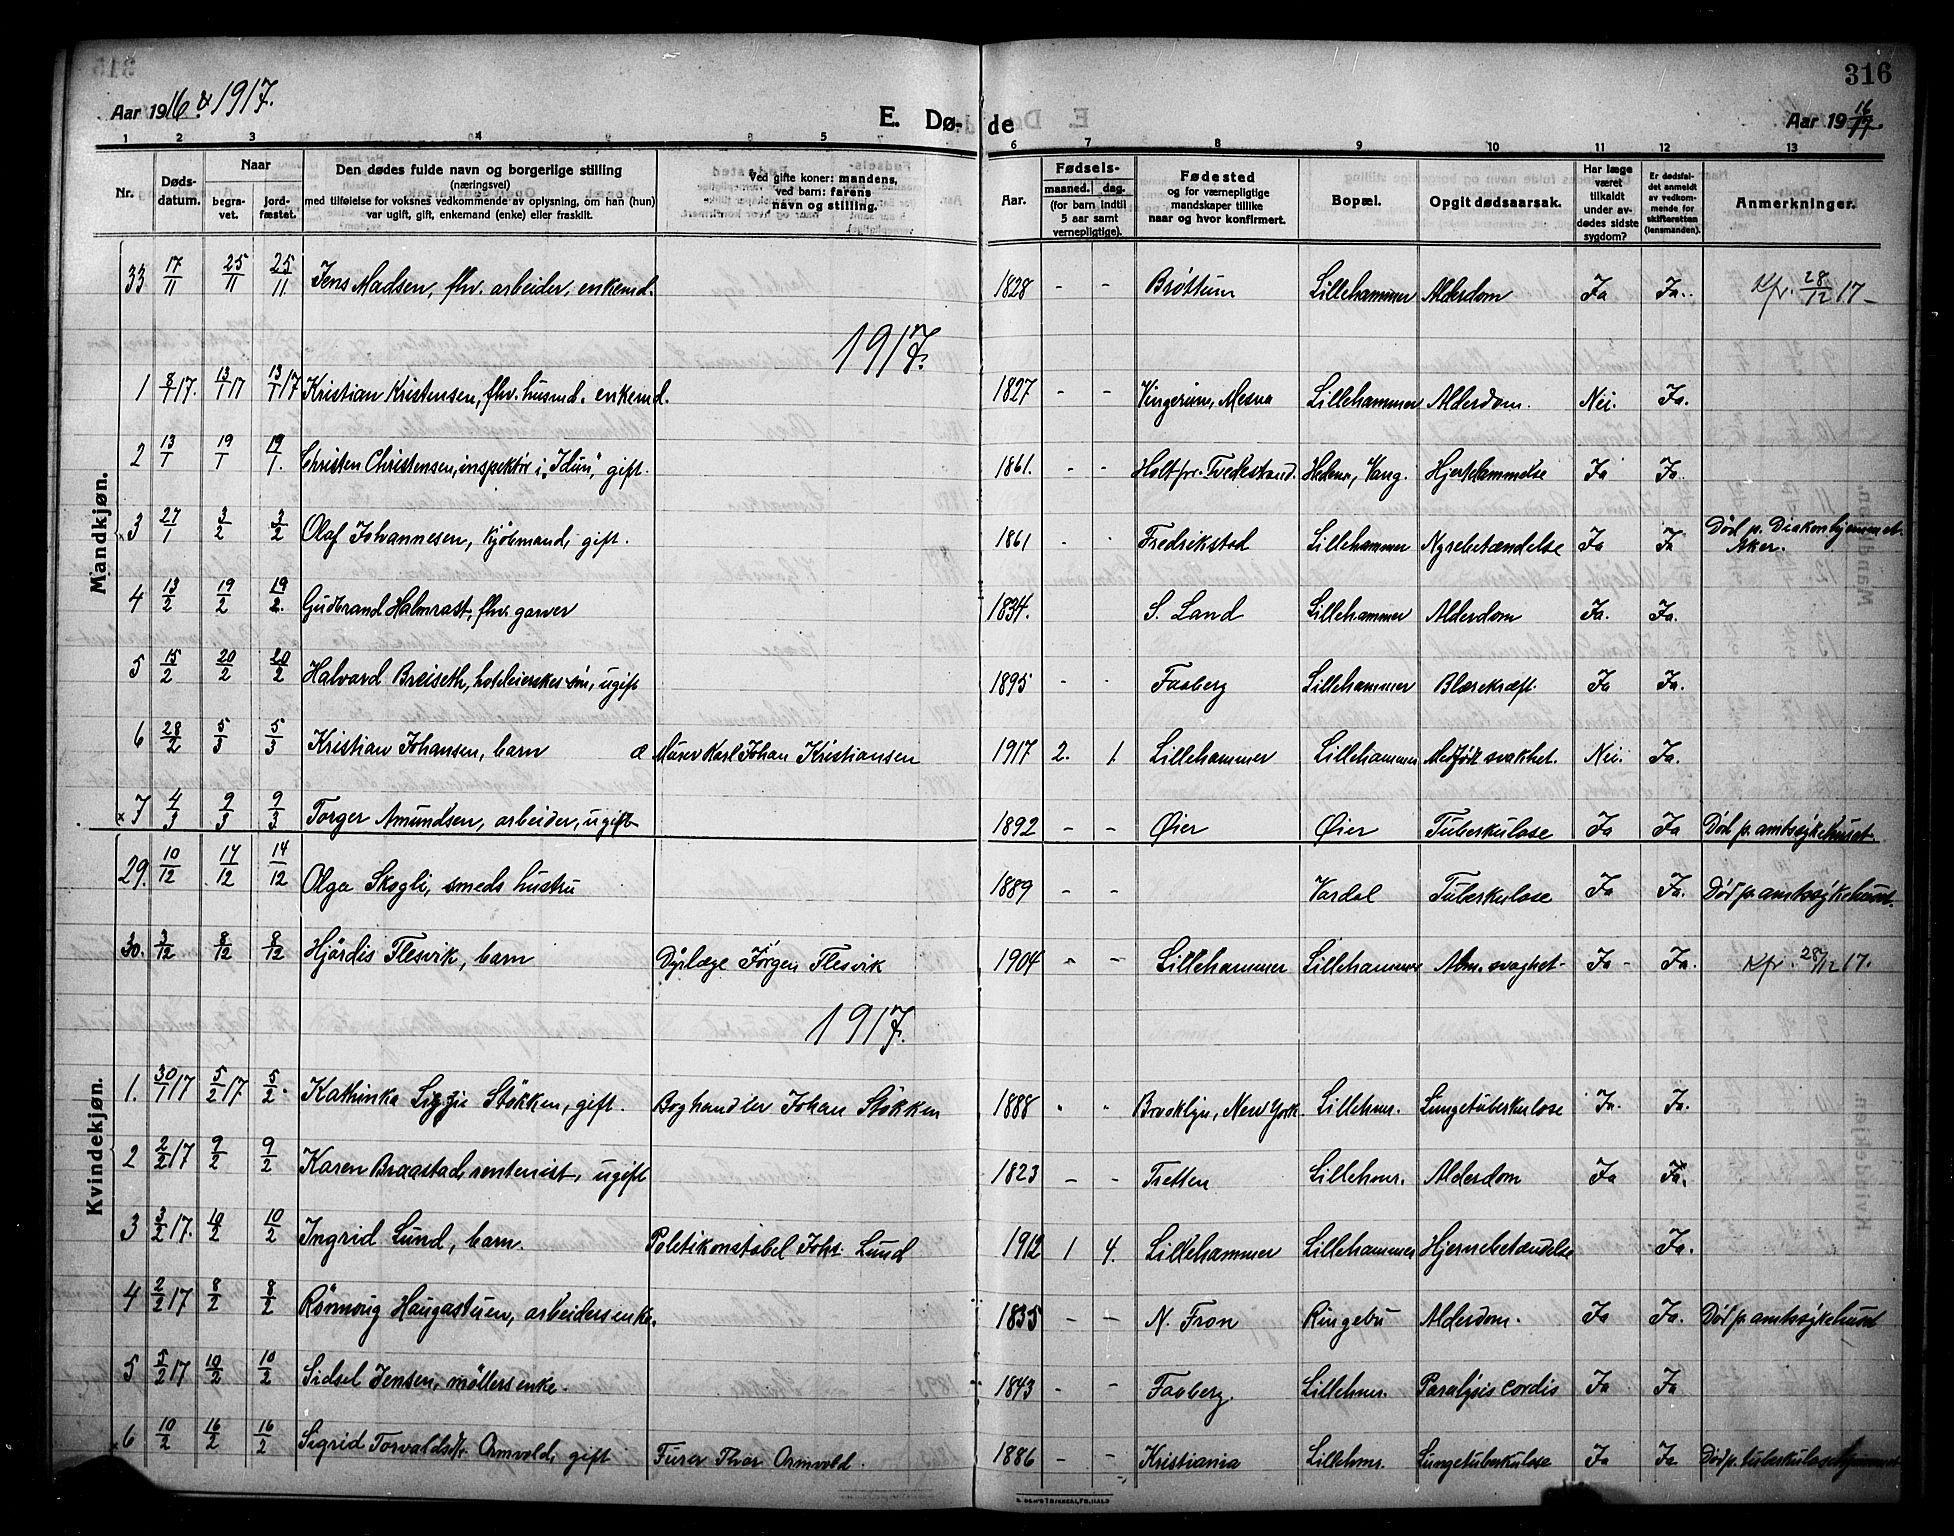 316
Aar 1916 & 1917.
E. Døde
Aar 19 16/17.
1 2 3 4 5 6 7 8 9 10 11 12 13
Nr. Døds-datum. Naar begra-vet. jord-fæstet. Den dødes fulde navn og borgerlige stilling (næringsvei) med tilføielse for voksnes vedkommende av oplysning, om han (hun) var ugift, gift, enkemand (enke) eller fraskilt. Ved gifte koner: mandens, ved barn: farens navn og stilling. Aar. Fødsels- maaned. dag. (for barn indtil 5 aar samt vernepligtige). Fødested og for værnepligtige mandskaper tillike naar og hvor konfirmert. Bopæl. Opgit dødsaarsak. Har læge været tilkaldt under av-dødes sidste sygdom? Er dødsfal-det anmeldt av vedkom-mende for skifteretten (lensmanden). Anmerkninger.
Mandkjøn.
33 17/11 25/11 25/11 Jens Madsen, fhv. arbeider, enkemd. 1828 - - Brøttum Lillehammer Alderdom Ja Ja. Kfr. 28/12 17-
1917.
1 8/1 17. 13/1 17 13/1 17 Kristian Kristensen, fhv. husmd. enkemd. 1827 - - Vingerum, Mesna Lillehammer Alderdom. Nei. Ja.
2 13/1 19/1 19/1. Christen Christensen, inspektør i "Idun", gift. 1861. - - Holt pr. Tvedestrand. Hedmn, Vang. Hjertelammelse Ja Ja.
x3 27/1 3/2 3/2 Olaf Johannesen, kjøbmand, gift. 1861 - - Fredrikstad Lillehammer Nyrebetændelse Ja Ja Død p. Diakonhjemmet Aker.
4 13/2 19/2 19/2. Gudbrand Halmrast, fhv. garver 1834. S. Land Lillehammer Alderdom Ja. Ja.
5 15/2 20/2 20/2 Halvard Breiseth, hoteleierskes søn, ugift 1895 - - Faaberg Lillehammer Blærekræft. Ja Ja.
6 28/2 5/3 5/3 Kristian Johansen, barn a Murer Karl Johan Kristiansen 1917 2. 1. Lillehammer Lillehammer Medfødt svakhet. Nei. Ja.
x7 4/3 9/3 9/3 Torger Amundsen, arbeider, ugift 1892 - - Øier Øier Tuberkulose Ja Ja Død p. amtssykehuset.
Kvindekjøn.
29. 10/12 14/12 14/12 Olga Skogli, smeds hustru 1889 - - Vardal Tuberkulose Ja Ja. Død p. amtssykehuset.
30. 3/12 8/12 8/12 Hjördis Flesvik, barn Dyrlæge Jörgen Flesvik 1904 - - Lillehammer Lillehammer Alm. svaghet- Ja- Ja. Kfr. 28/12 17.
1917.
1. 30/1 17 5/2 17 5/2. Kathinka Lizzie Stökken, gift. Boghandler Johan Stökken 1888 " " Brooklyn, New York. Lillehmr. Lungetuberkulose Ja. Ja.
2 2/2 17 9/2 9/2 Karen Braastad, rentenist, ugift 1823 - - Tretten Lillehmr. Alderdom Ja Ja.
3 3/2 17. 10/2 10/2 Ingrid Lund, barn. Politikonstabel Johs. Lund 1912 1 4. Lillehammer Lillehammer Hjernebetændelse Ja.
4 2/2 17 8/2 8/2 Rønnoug Haugastuen, arbeidersenke. 1835 - - N. Fron Ringebu Alderdom. Ja Ja. Død p. amtssykehuset
5 5/2 17 10/2 10/2 Sidsel Jensen, møllersenke. 1843 - - Faaberg. Lillehmr. Paralysis cordis Ja Ja
x6 10/2 16/2 16/2 Sigrid Torvaldsdtr. Ormvold, gift Furer Thor Ormvold. 1886 - - Kristiania Lillehmr. Lungetuberkulose Ja Ja Død p. tuberkulosehjemmet